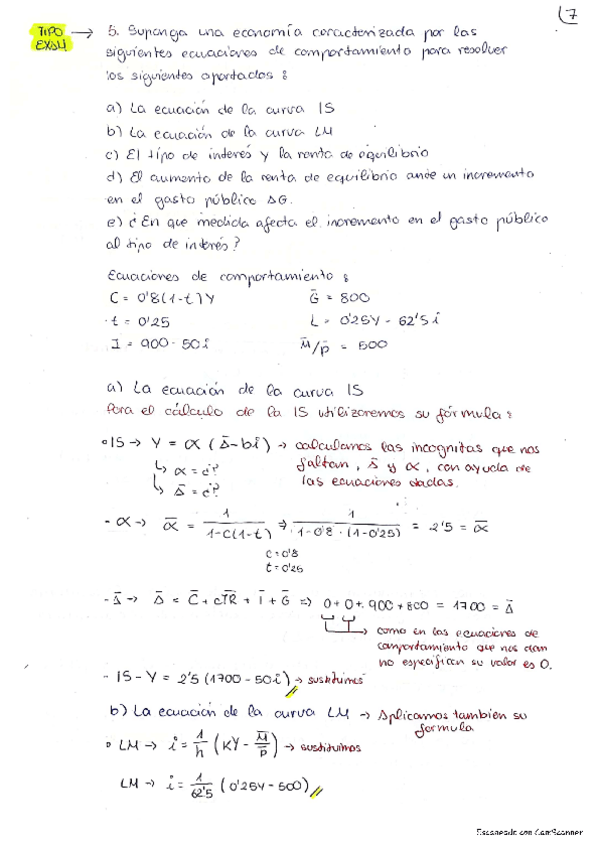 TIPO EXAM → 5. Suponga una economía caracterizada por las
siguientes ecuaciones de comportamiento para resolver
los siguientes apartados:
a) La ecuación de la curva IS
b) La ecuación de la curva LM
c) El tipo de interés y la renta de equilibrio
d) El aumento de la renta de equilibrio ante un incremento
en el gasto público ΔG.
e) ¿En que medida afecta el incremento en el gasto público
al tipo de interés?
Ecuaciones de comportamiento:
C = 0'8(1-t)Y G̅ = 800
t = 0'25 L = 0'25Y - 62'5i
I = 900 - 50i M̅/p̅ = 500
a) La ecuación de la curva IS
Para el cálculo de la IS utilizaremos su fórmula:
IS → Y = α (A̅ - bi) → calculamos las incognitas que nos
↳ α = ¿? faltan, A̅ y α, con ayuda de
↳ A̅ = ¿? las ecuaciones dadas.
- α → α̅ = 1/(1-c(1-t)) ⇒ 1/(1-0'8·(1-0'25)) = 2'5 = α̅
c = 0'8
t = 0'25
- A̅ → A̅ = C̅ + cTR̅ + I̅ + G̅ ⇒ 0 + 0 + 900 + 800 = 1700 = A̅
→ como en las ecuaciones de
comportamiento que nos dan
no especifican su valor es 0.
- IS - Y = 2'5 (1700 - 50i) → sustituimos
b) La ecuación de la curva LM → Aplicamos tambien su
formula
LM → i = 1/h (KY - M̅/P̅) → sustituimos
LM → i = 1/62'5 (0'25Y - 500)
Escaneado con CamScanner